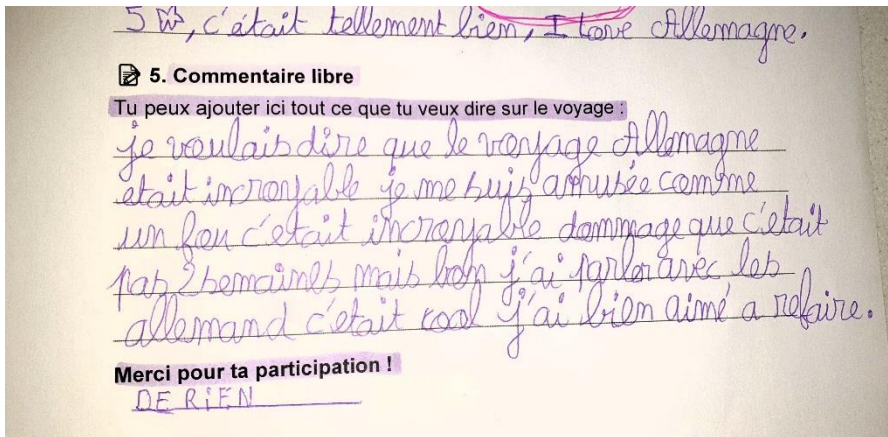 5 ☆, c'était tellement bien, I love Allemagne.
5. Commentaire libre
Tu peux ajouter ici tout ce que tu veux dire sur le voyage :
je voulais dire que le voyage Allemagne
etait incroyable je me suis amusée comme
un fou c'etait incroyable dommage que c'était
pas 2 semaines mais bon j'ai parler avec les
allemand c'etait cool j'ai bien aimé a refaire.
Merci pour ta participation !
DE RiEN